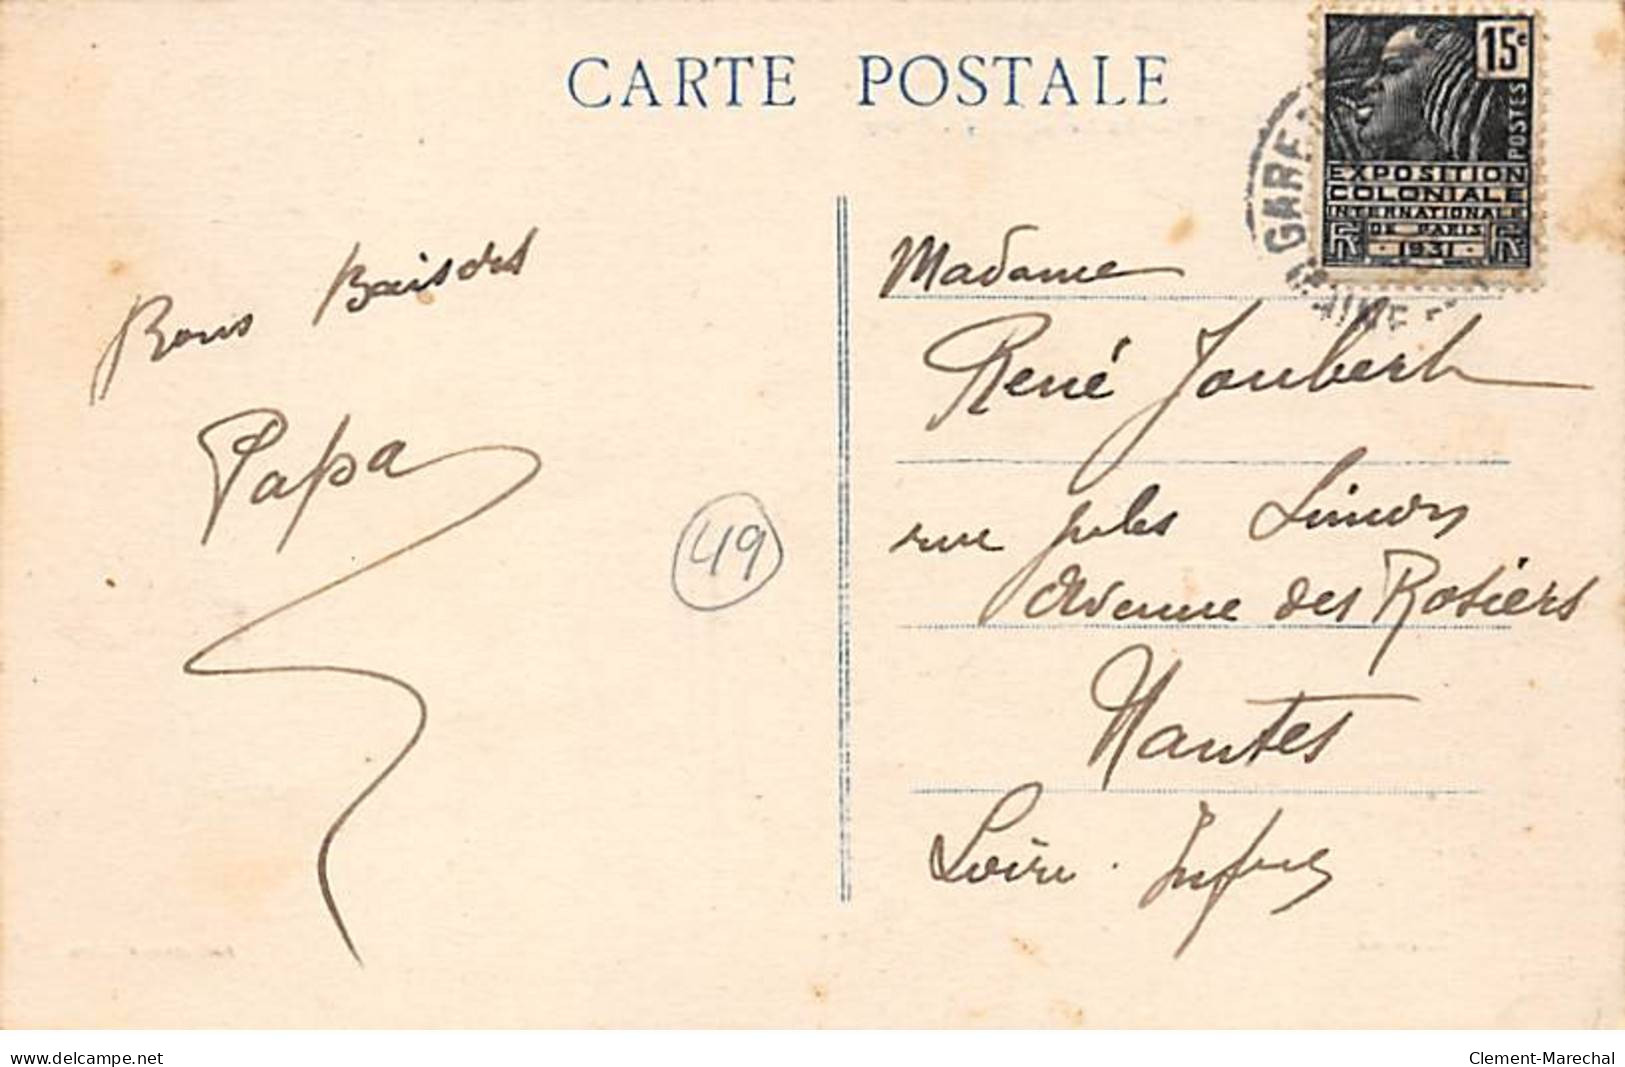 CARTE POSTALE
15c
POSTES
EXPOSITION
COLONIALE
INTERNATIONALE
DE PARIS
RF 1931 RF
GARE
Bons Baisers
Papa
49
Madame
René Joubert
rue Jules Simon
Avenue des Rosiers
Nantes
Loire. Infre
www.delcampe.net
Clement-Marechal